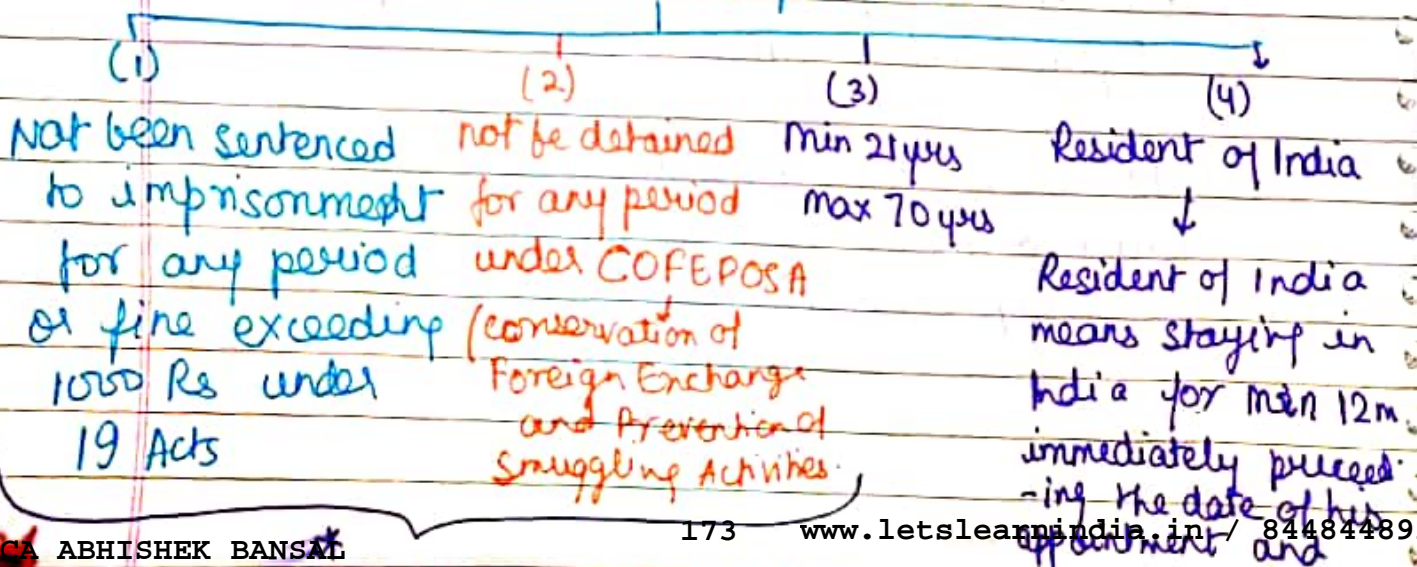 (1)
Not been sentenced
to imprisonment
for any period
or fine exceeding
1000 Rs under
19 Acts
(2)
not be detained
for any period
under COFEPOSA
(conservation of
Foreign Exchange
and Prevention of
Smuggling Activities.
(3)
Min 21 yrs
Max 70 yrs
(4)
Resident of India
Resident of India
means staying in
India for min 12m
immediately preceed-
-ing the date of his
appointment and
CA ABHISHEK BANSAL
173
www.letslearnindia.in / 84484489